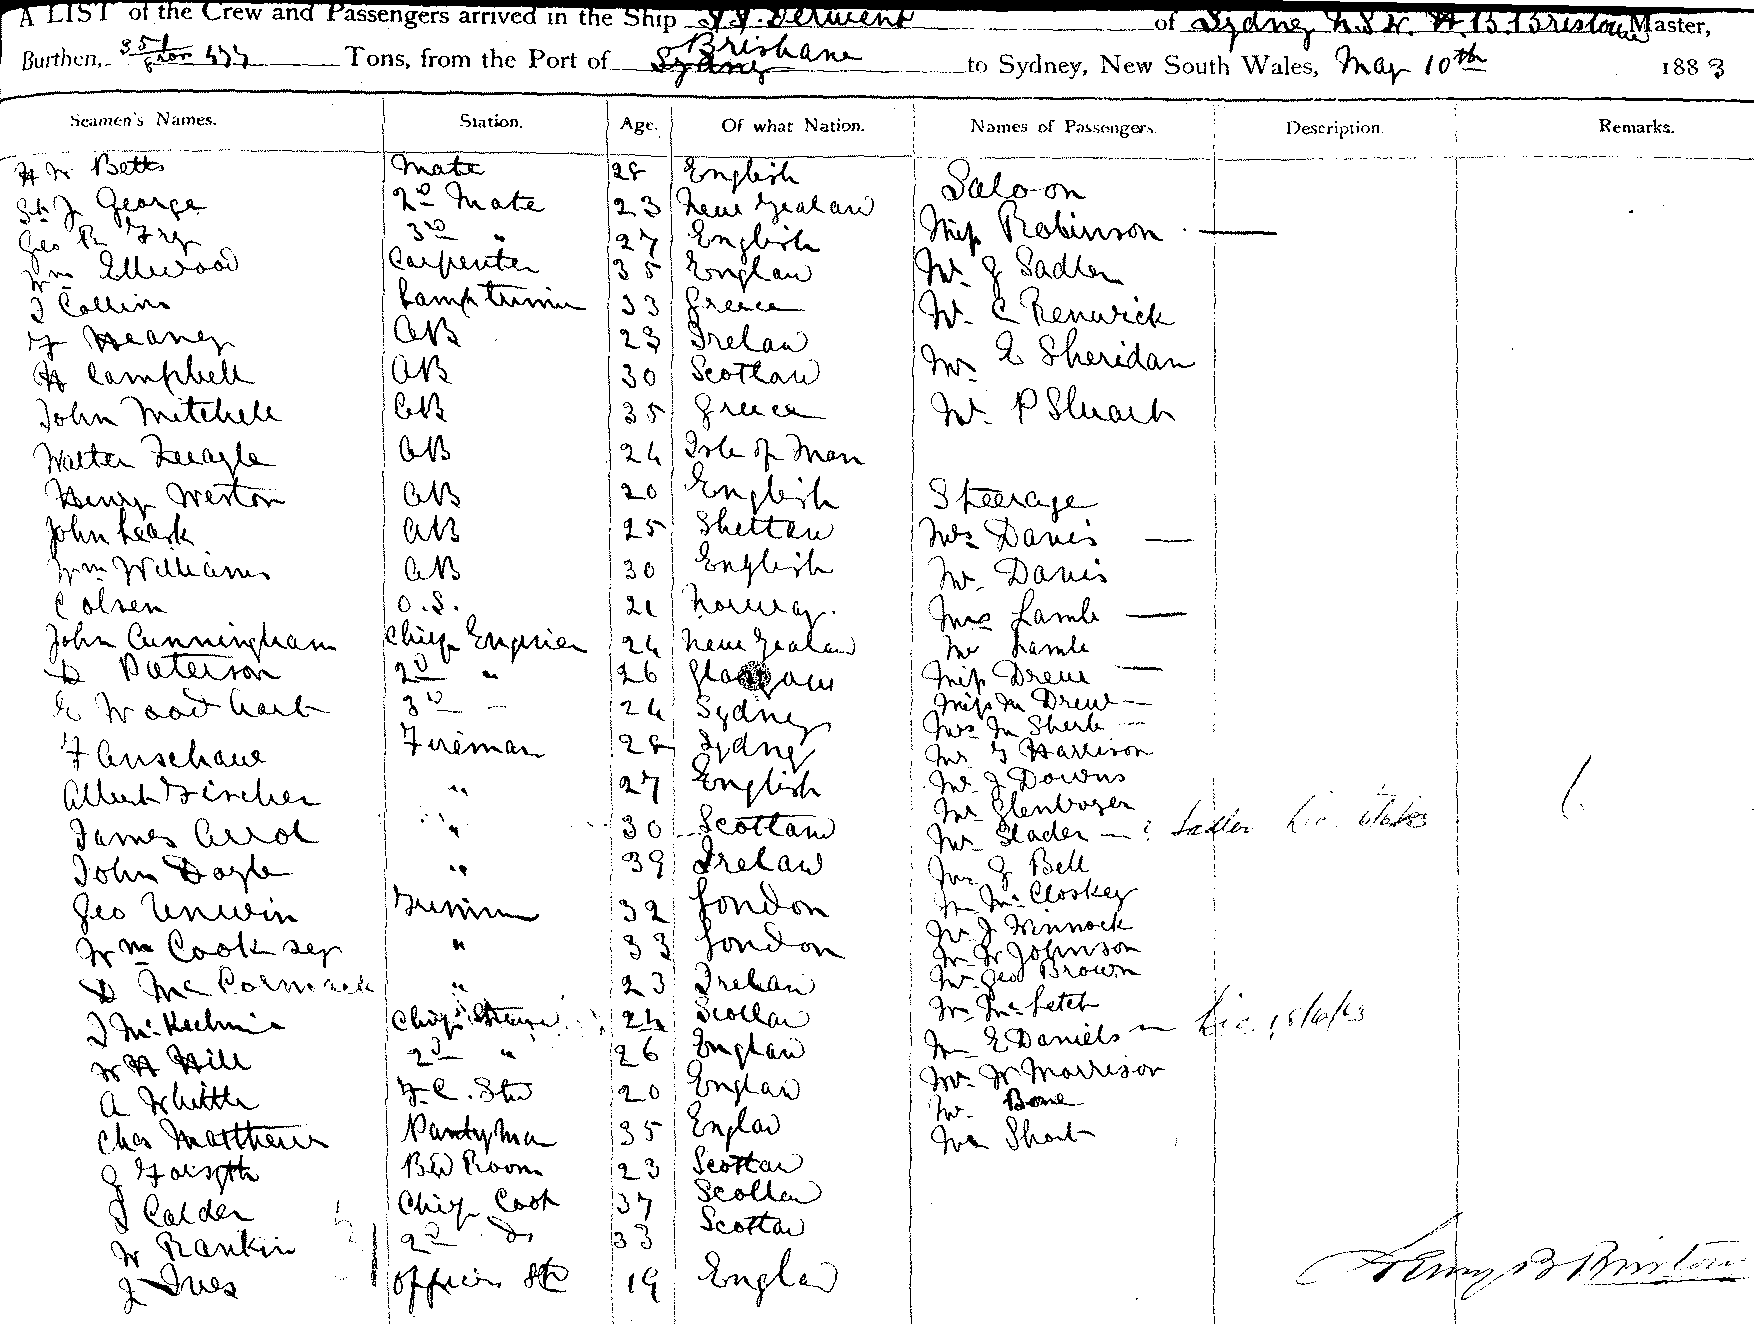 A LIST of the Crew and Passengers arrived in the Ship S.S. Derwent of Sydney N.S.W. H. B. Bristow Master,
Burthen, 477 Tons, from the Port of Sydney Brisbane to Sydney, New South Wales, May 10th 1883
Seamen's Names. Station. Age. Of what Nation. Names of Passengers. Description. Remarks.
H W Betts Mate 28 English Saloon
St J George 2nd Mate 23 New Zealand Miss Robinson —
Geo R Fry 3rd " 27 English
Wm Ellwood Carpenter 35 England Mr J Sadler
J Collins Lamptrimmer 33 Greece Mr C Renwick
Heaney AB 23 Ireland
H Campbell AB 30 Scotland Mr Sheridan
John Mitchell AB 35 Greece Mr P Stuart
Walter AB 24 Isle of Man
Henry Weston AB 20 English Steerage
John Leask AB 25 Shetland Mrs Davis —
Wm Williams AB 30 English Mr Davis
C Olsen O.S. 21 Norway. Mrs Lamb —
John Cunningham Chief Engineer 24 New Zealand Mr Lamb
D Paterson 2nd " 26 Glasgow Miss Drew —
E Woodhart 3rd – 24 Sydney Miss M Drew —
Mrs M Sherb —
F Fireman 28 Sydney Mr G Harrison
Albert Fischer " 27 English Mr J Downs
Mr Glenbogen
James Arrol " 30 Scotland Mr Slader — Sadler
John Doyle " 39 Ireland Mr J Bell
Geo Unwin Trimmer 32 London Mr McCloskey
Mr J Winnock
Wm Cook sep " 33 London Mr W Johnson
D McCormack " 23 Ireland Mr Geo Brown
J McKechnie Chief Steward 24 Scotland Mr McFetch
W H Hill 2nd " 26 England Mr E Daniels —
A Whittle F.C. Std 20 England Mr W Morrison
Mr Bone
Chas Matthews Pantryman 35 England Mr Short
J Forsyth Bed Room 23 Scotland
J Calder Chief Cook 37 Scotland
W Rankin 2nd Do 33 Scotland
J Ives Officers Std 19 England Henry B Bristow